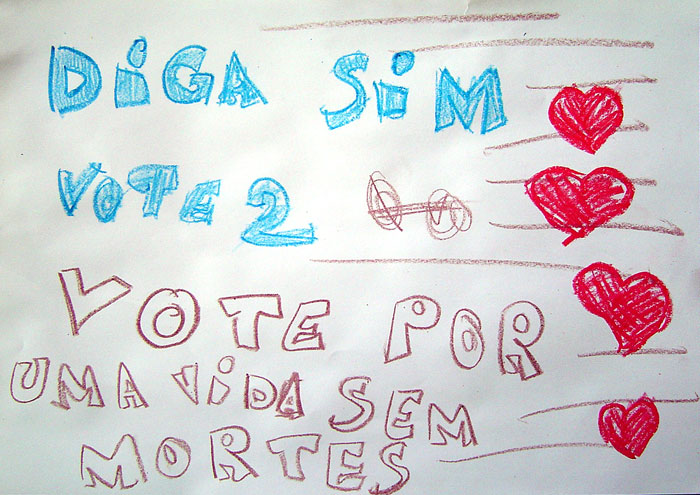 DiGA SiM
VOTE 2
VOTE POR
UMA ViDA SEM
MORTES